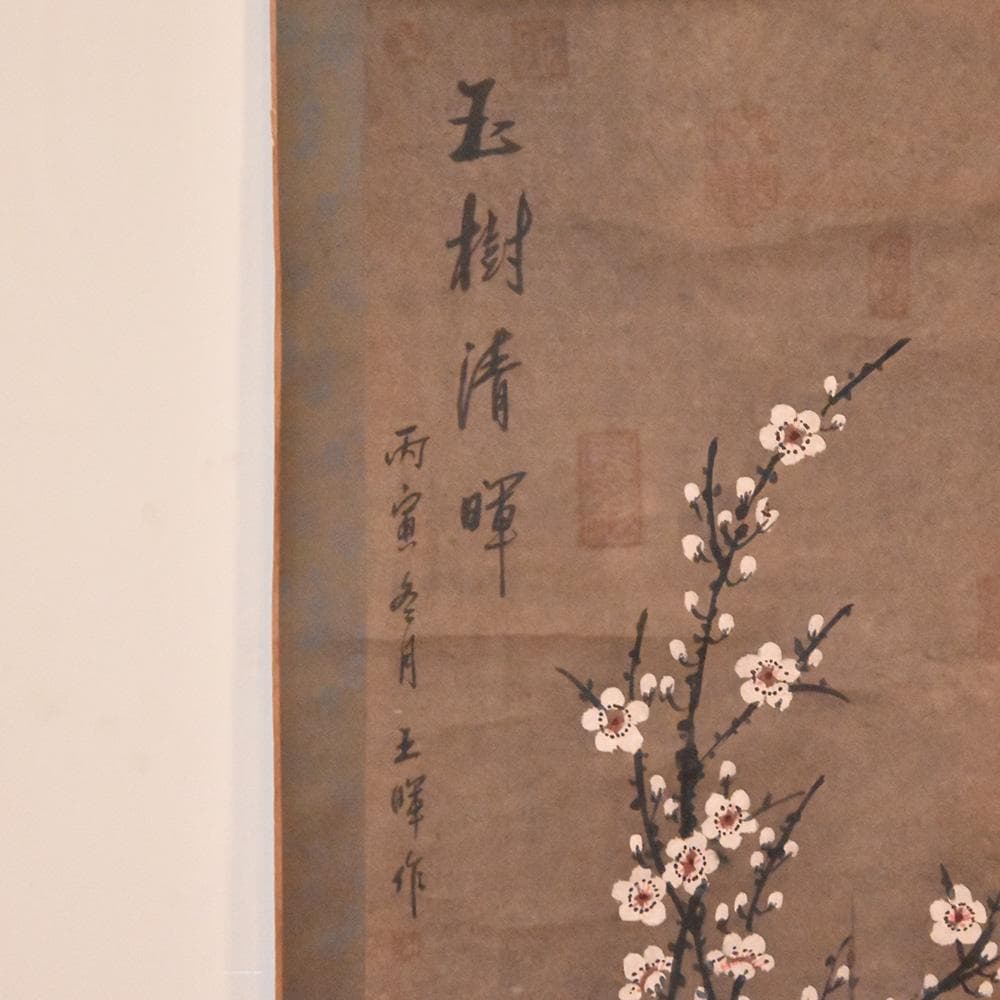 玉樹清暉
丙寅冬月 王暉作